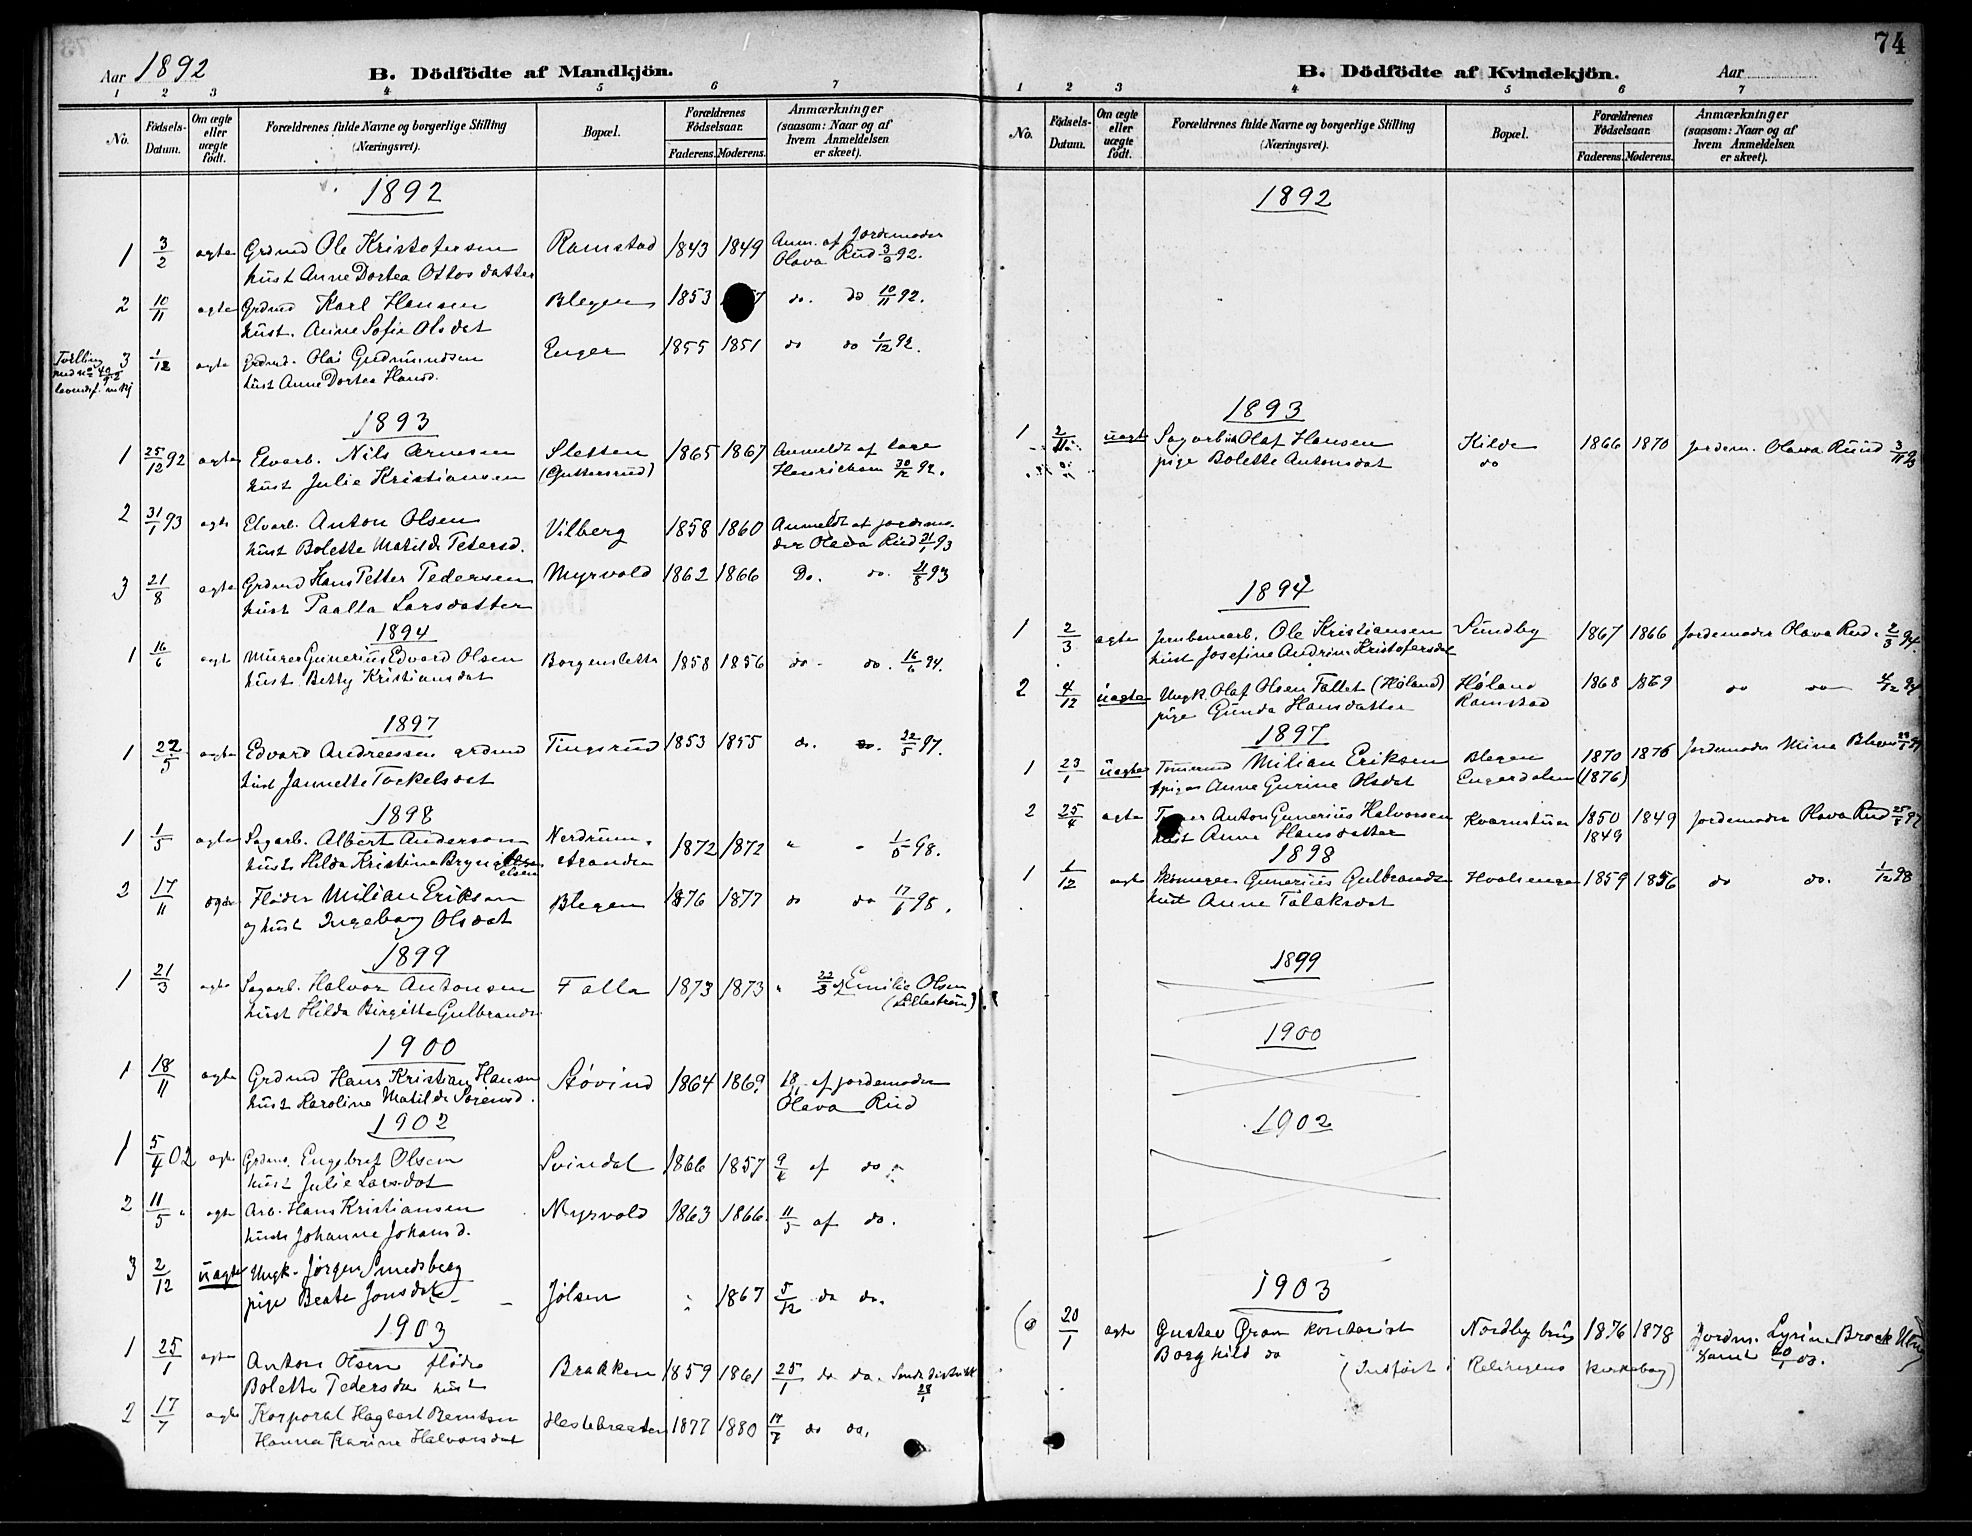 Aar 1892 B. Dödfödte af Mandkjön.
1 2 3 4 5 6 7
No. Födsels-Datum. Om ægte eller uægte født. Forældrenes fulde Navne og borgerlige Stilling (Næringsvei). Bopæl. Forældrenes Födselsaar. Faderens. Moderens. Anmærkninger (saasom: Naar og af hvem Anmeldelsen er skeet).
1892
1 3/2 ægte Grdmd Ole Kristofersen Ramstad 1843 1849 Anm. af Jordemoder
hust Anne Dortea Ottosdatter Olava Rud 3/2 92.
2 10/11 ægte Grdmd Karl Hansen Blegen 1853 do. do 10/11 92.
hust. Anne Sofie Olsdat
Tvilling 3 1/12 ægte Grdmd. Olai Gudmundsen Enger 1855 1851 do do 1/12 92.
hust Anne Dortea Hansd.
1893
1 25/12 92 ægte Elvarb. Nils Arnesen Sletten 1865 1867 Anmeldt af
hust Julie Kristiansen (Guttersrud) Henrichsen 30/12 92.
2 31/1 93 ægte Elvarb. Anton Olsen Vilberg 1858 1860 Anmeldt af jordemo-
hust Bolette Matilde Petersd. der Olava Rud 31/1 93
3 21/8 ægte Grdmd Hans Petter Pedersen Myrvold 1862 1866 Do. do. 21/8 93
hust Larsdatter
1894
1 16/6 ægt Murer Gunerius Edvard Olsen Borgensletta 1858 1856 do. do. 16/6 94.
hust. Betty Kristiansdat
1897
1 22/5 ægte Edvard Andreassen grdmd Tingsrud 1853 1855 do. do. 22/5 97.
hust Jannette Tockelsdat
1898
1 1/5 ægte Sagarb. Albert Anderson Nerdrum- 1872 1872 " " 1/5 98.
hust Hilda Kristine stranden
2 17/11 ægte Fløder Milian Eriksen Blegen 1876 1877 do do 98.
og hust Ingeborg Olsdat
1899
1 21/3 ægte Sagarb. Halvor Antonsen Falla 1873 1873 " 22/3 af Emilie Olsen
hust Hilda Birgitte Gulbrands (Lillestrøm)
1900
1 18/11 ægte Grdmd Hans Kristian Hansen Støvind 1864 1869. 18/11 af jordemoder
hust Karoline Matilde Sørensd. Olava Rud
1902
1 5/4 02 ægte Grdmd. Engebret Olsen Svindal 1866 1857 9/4 af do
hust Julie Larsdat
2 11/5 " ægte Arb. Hans Kristiansen Myrvold 1863 1866 11/5 af do.
hust Johanne Johansd.
3 2/12 uægte Ungk. Jørgen Smedsberg
pige Beate Jonsdat Jølsen " 1867 5/12 do do.
1903
1 25/1 ægte Anton Olsen fløder Brakken 1859 1861 25/1 do do.
Bolette Pedersda hust
2 17/7 ægte Korporal Hagbart Berntsen Hestebraaten 1877 1880 17/7 do do.
Hanna Karine Halvorsdat
74
B. Dödfödte af Kvindekjön. Aar
1 2 3 4 5 6 7
No. Födsels-Datum. Om ægte eller uægte født. Forældrenes fulde Navne og borgerlige Stilling (Næringsvei). Bopæl. Forældrenes Födselsaar. Faderens. Moderens. Anmærkninger (saasom: Naar og af hvem Anmeldelsen er skeet).
1892
1893
1 2/11 uægte Olaf Hansen Kilde 1866 1870 Jordem. Olava Ruud 3/11 93
pige Bolette Antonsdat do
1894
1 2/3 ægte Jernbanearb. Ole Kristiansen Sundby 1867 1866 Jordemoder Olava Rud. 2/3 94.
hust Josefine Andrine Kristofersdat
2 4/12 uægte Ungk. Olaf Olsen Fallet (Høland) Høland 1868 1869 do do 4/12 94
pige Gunda Hansdatter Ramstad
1897
1 23/1 uægte Milian Eriksen Blegen 1870 1876 Jordemoder Mina
pige Anne Gurine Olsdat Engerdalen (1876)
2 25/4 ægte Anton Gunerius Halvorsen Kvernstuen 1850 1849 Jordemoder Olava Rud 97
hust Anne Hansdatter 1849
1898
1 1/12 ægte Gunerius Gulbrands 1859 1856 do do. 1/12 98
hust Anne Talaksdat
1899
1900
1902
1903
20/1 ægte Gustav Gran kontorist Nordby brug 1876 1878 Jordm. Lysine Brock
Borghild do (Indført i Rælingens Kirkebog) 20/1 03.